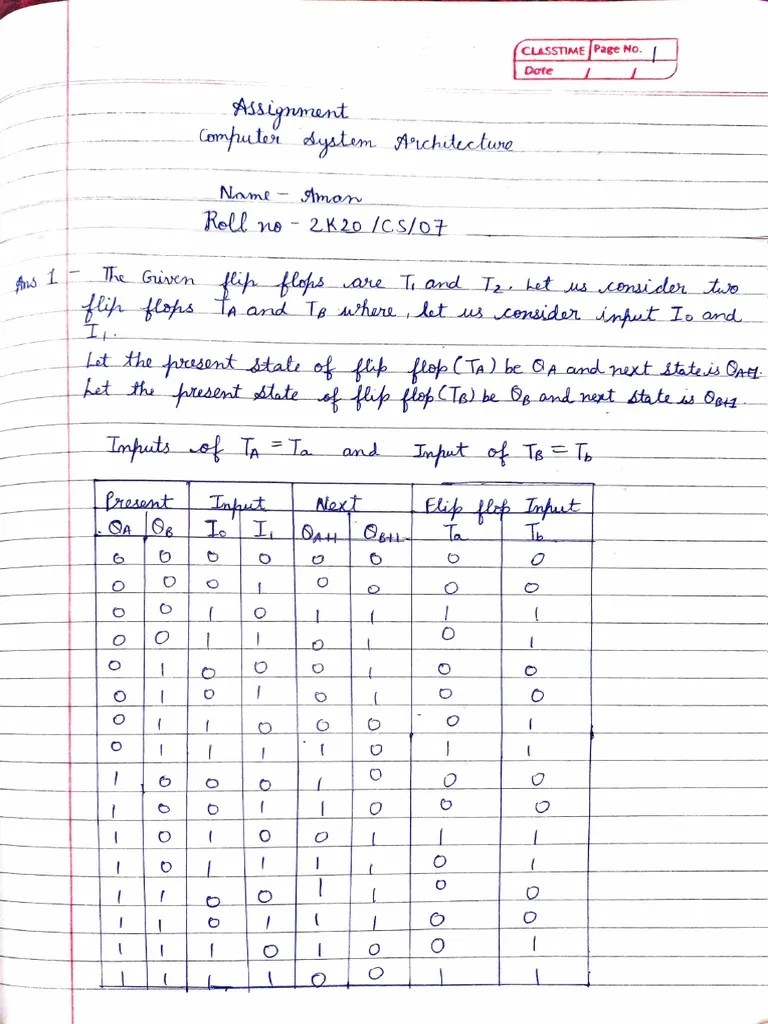 CLASSTIME Page No. 1
Date / /
Assignment
Computer System Architecture
Name - Aman
Roll no - 2K20/CS/07
Ans 1 - The Given flip flops are T1 and T2. Let us consider two
flip flops TA and TB where, let us consider input I0 and
I1.
Let the present state of flip flop (TA) be QA and next state is QA+1.
Let the present state of flip flop (TB) be QB and next state is QB+1.
Inputs of TA = Ta and Input of TB = Tb
Present Input Next Flip flop Input
QA QB I0 I1 QA+1 QB+1 Ta Tb
0 0 0 0 0 0 0 0
0 0 0 1 0 0 0 0
0 0 1 0 1 1 1 1
0 0 1 1 0 1 0 1
0 1 0 0 0 1 0 0
0 1 0 1 0 1 0 0
0 1 1 0 0 0 0 1
0 1 1 1 1 0 1 1
1 0 0 0 1 0 0 0
1 0 0 1 1 0 0 0
1 0 1 0 0 1 1 1
1 0 1 1 1 1 0 1
1 1 0 0 1 1 0 0
1 1 0 1 1 1 0 0
1 1 1 0 1 0 0 1
1 1 1 1 0 0 1 1